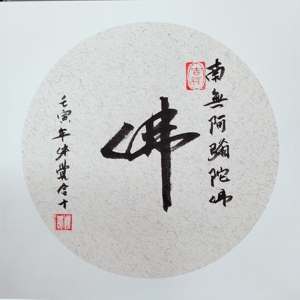 南無阿彌陀佛
佛
壬寅年佛堂合十